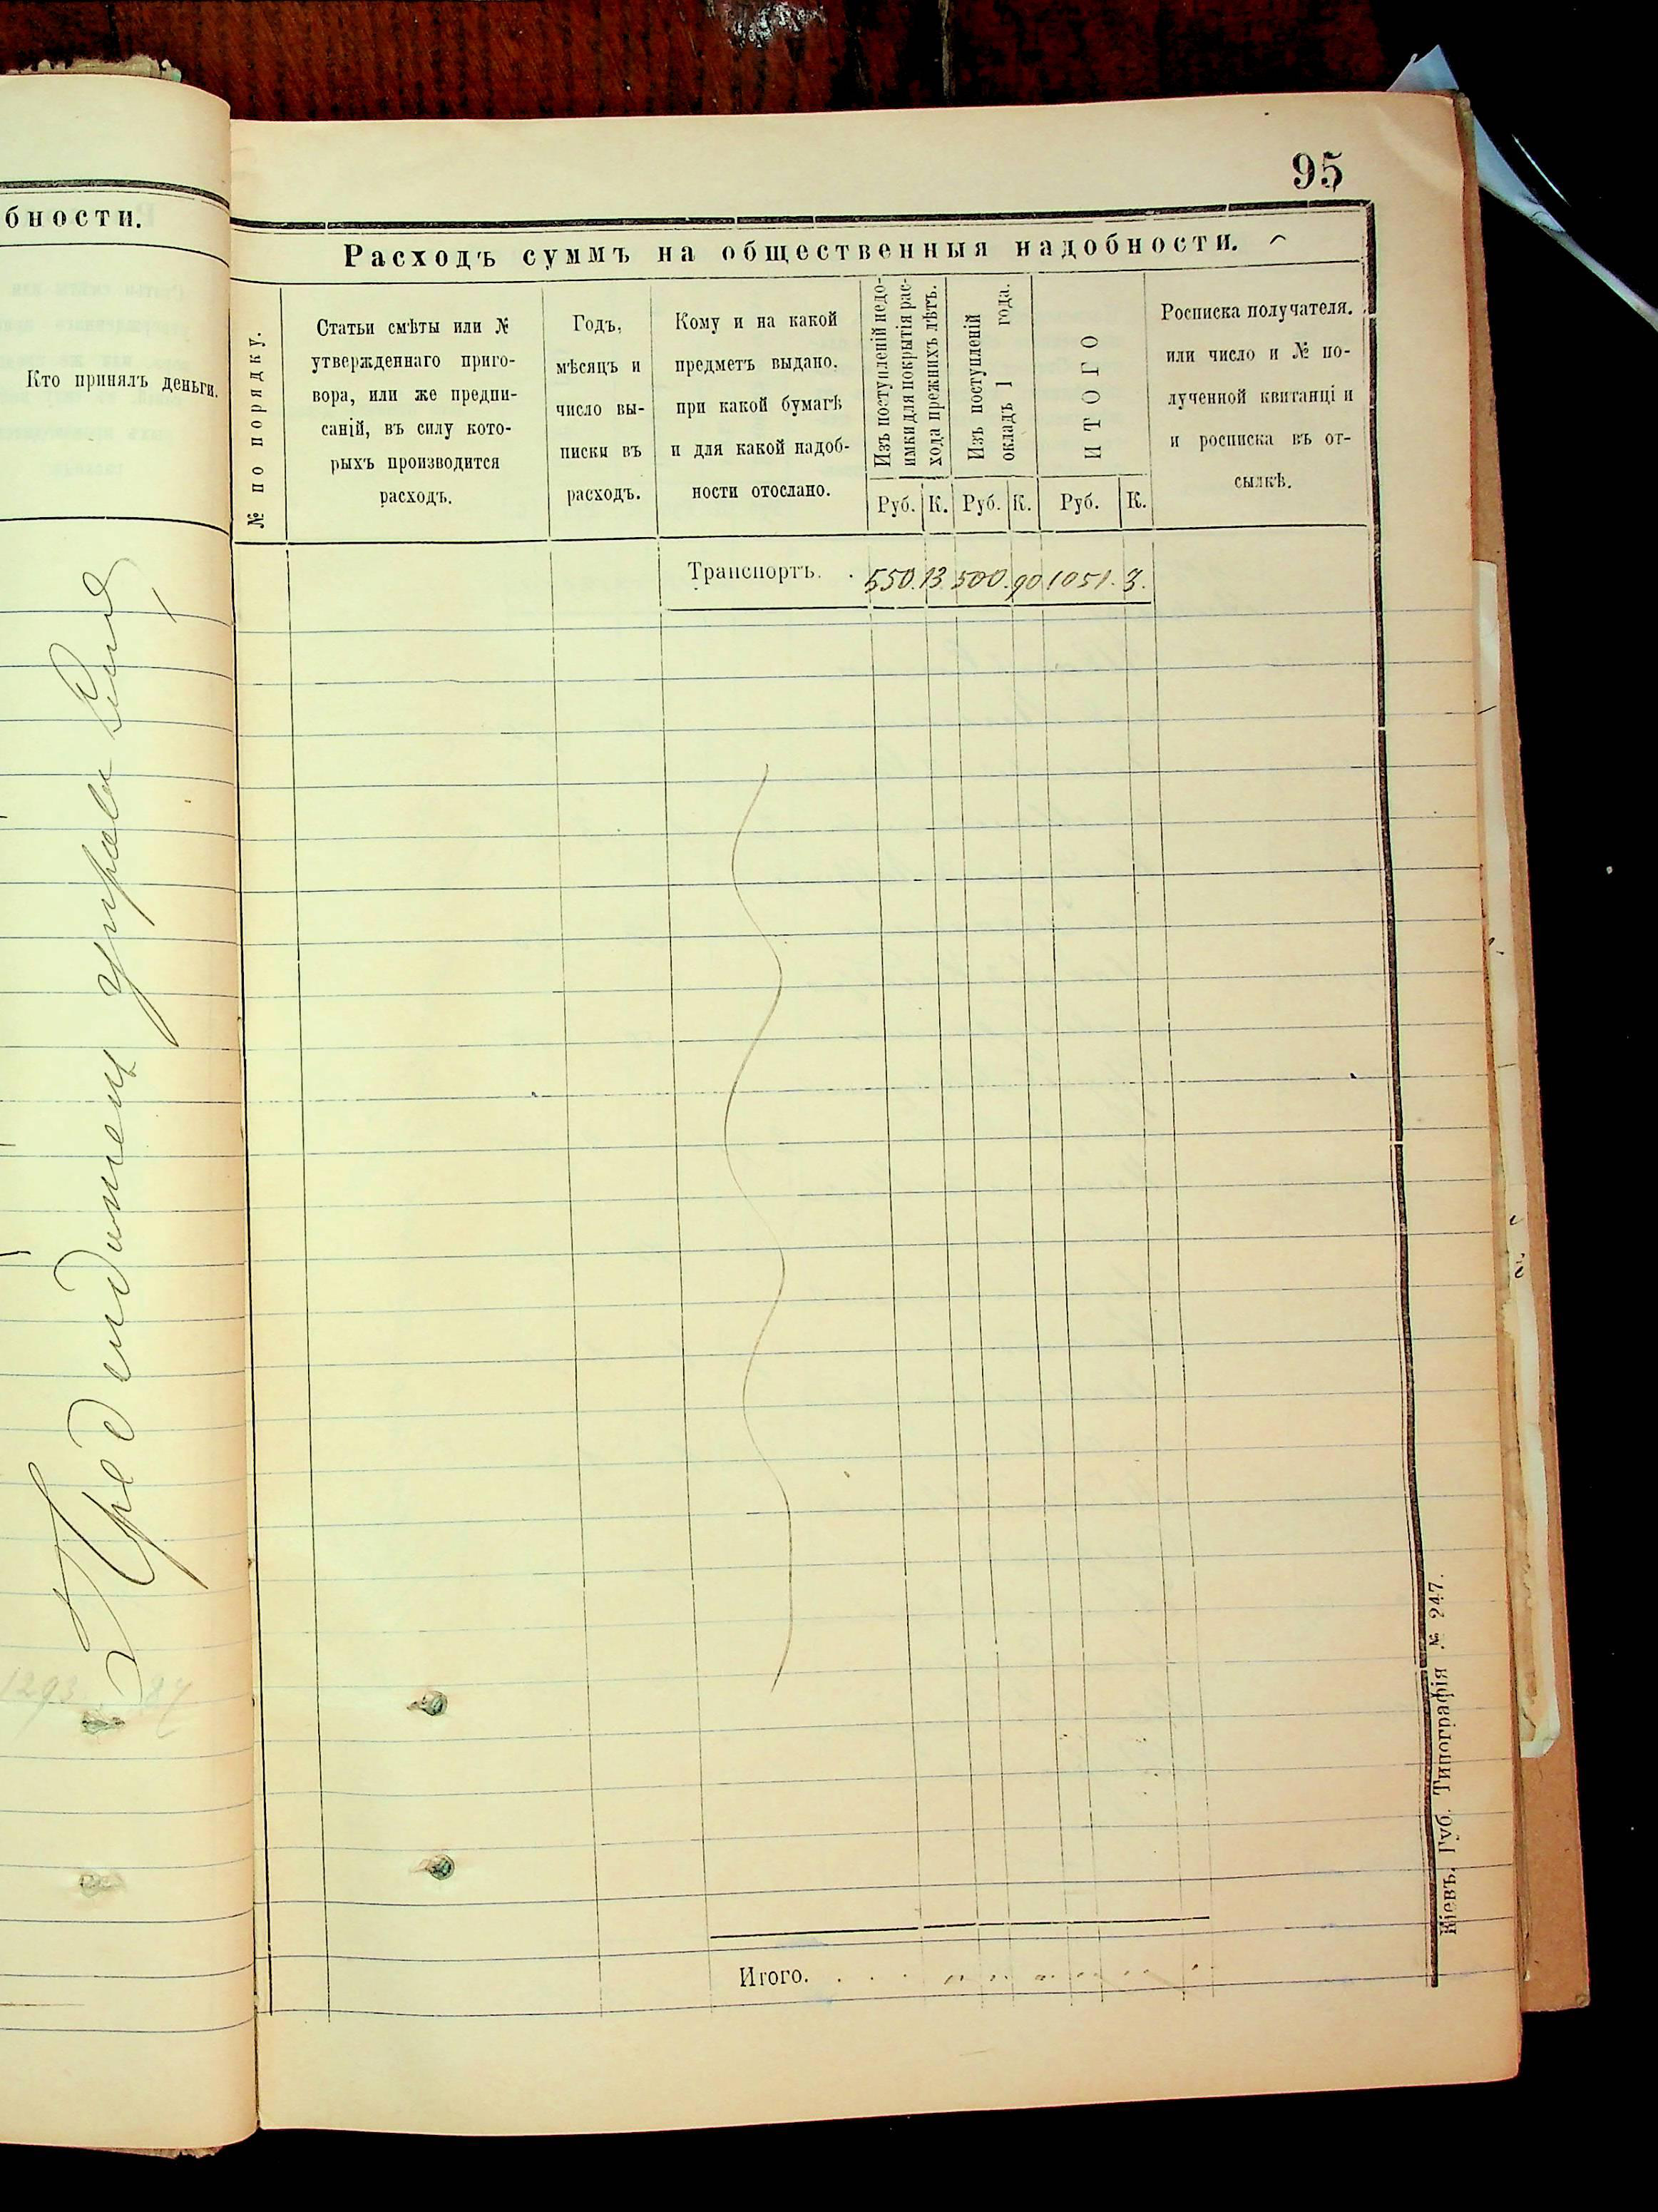 бности.
Кто принялъ деньги.
1293 84
95
Расходъ суммъ на общественныя надобности.
№ по порядку.
Статьи смѣты или №
утвержденнаго приго-
вора, или же предпи-
саній, въ силу кото-
рыхъ производится
расходъ.
Годъ,
мѣсяцъ и
число вы-
писки въ
расходъ.
Кому и на какой
предметъ выдано.
при какой бумагѣ
и для какой надоб-
ности отослано.
Изъ поступленій недо-
имки для покрытія рас-
хода прежнихъ лѣтъ.
Изъ поступленій
окладъ 1 года.
ИТОГО
Руб. К. Руб. К. Руб. К.
Росписка получателя.
или число и № по-
лученной квитанці и
и росписка въ от-
сылкѣ.
Транспортъ. . 550. 13. 500. 90 1051. 3.
Итого. . . .
Кіевъ. Губ. Типографія № 247.